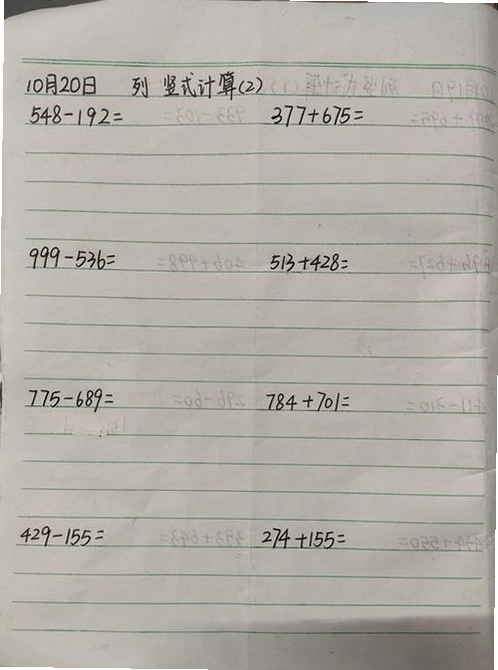 10月20日 列竖式计算(2)
548-192= 377+675=
999-536= 513+428=
775-689= 784+701=
429-155= 274+155=